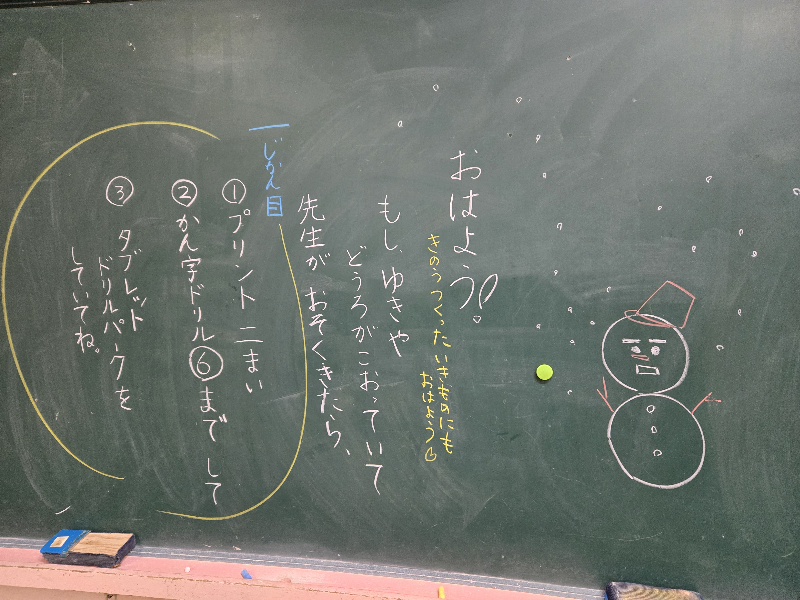 おはよう!
きのうつくったいきものにも
おはよう
もし、ゆきや
どうろがこおっていて
先生が おそくきたら、
一じかん目
① プリント 二まい
② かん字ドリル⑥まで して
③ タブレット
ドリルパークを
していてね。